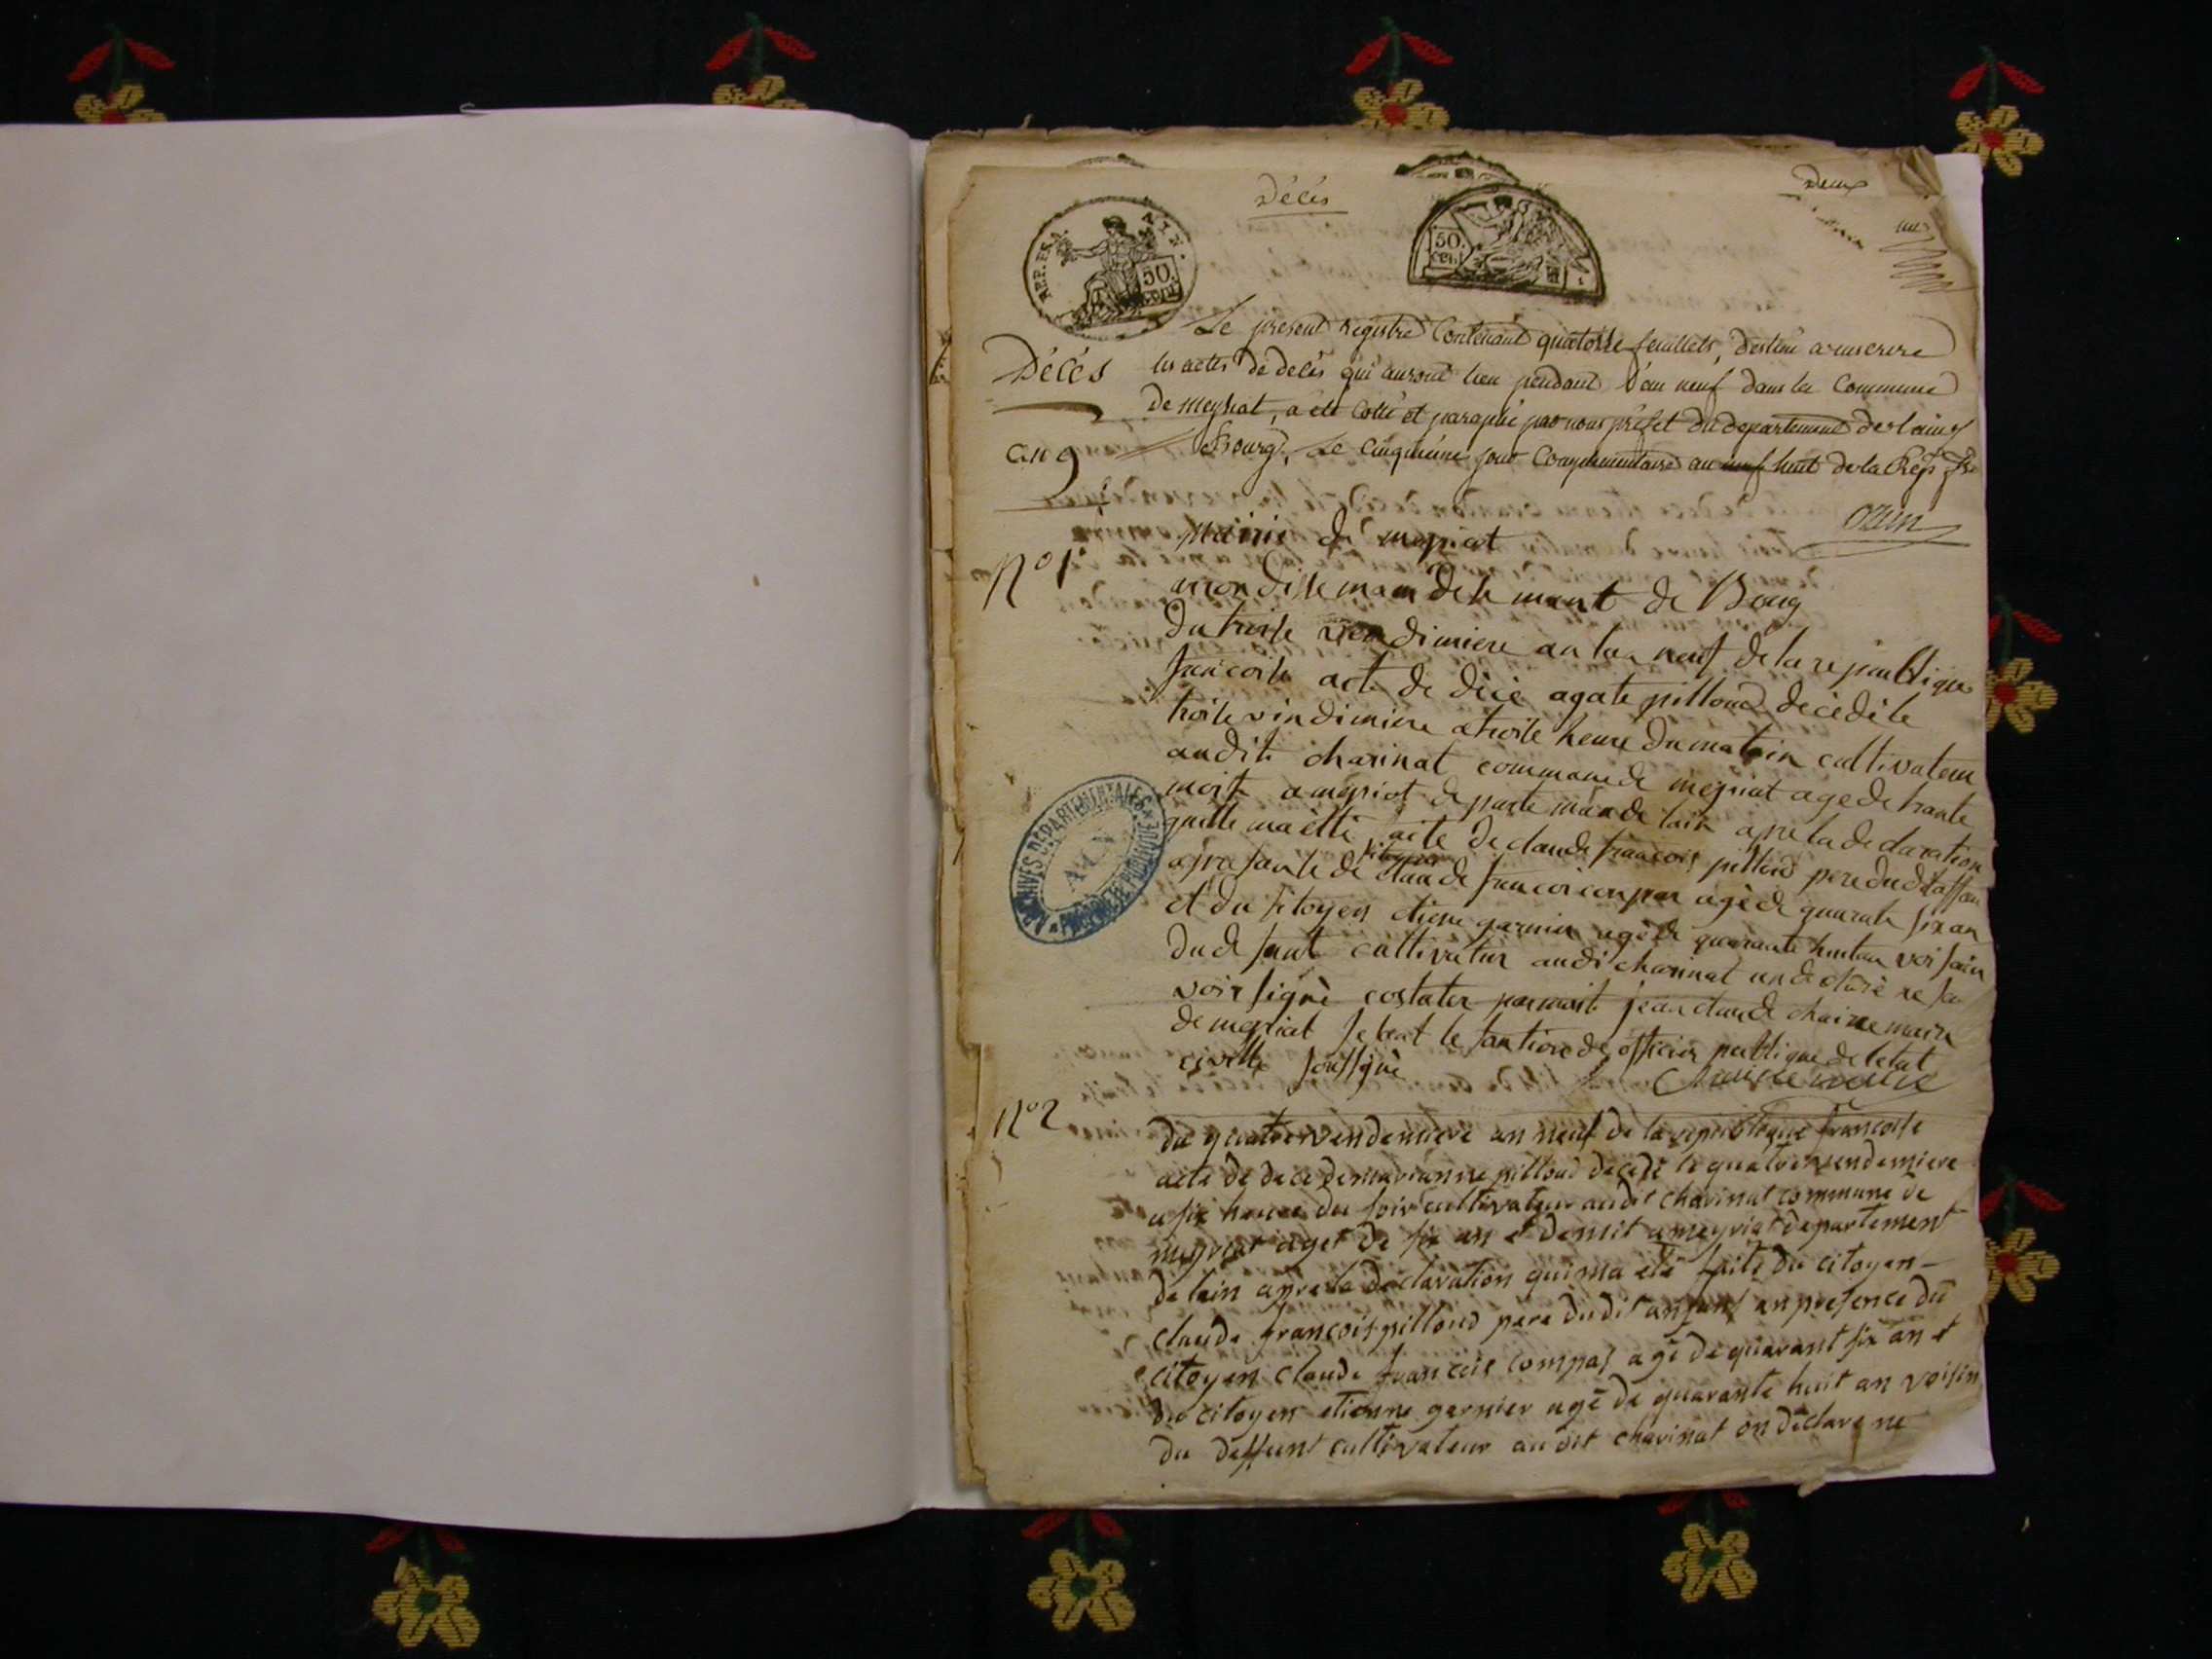 Décés
Deux
une
REP. FSA.
AIN.
50.
cent
50.
cen.
Le present registre Contenant quatorze feuillets, destiné a inscrire
Décés
les actes de décés qui auront lieu pendant l'an neuf dans la Commune
De meyriat, a été Cotté et paraphé par nous préfet du departement de l'ain
an 9
Bourg, Le Cinquieme jour Complementaire an neuf huit de la Rep. fse
Ozun
mairie de meyriat
N° 1
arrondissemam de lemant de Boug
Du troise vendimiere an lan neuf de la republique
francoise acte de décè agate pilloud décèdè le
troise vindimiere a troise heure du matin cultivateur
audit charinat commune de meyriat age de trante
mort a meyriat de parte man de lain apre la declaration
quelle ma ètté faite de claude francois pilloud pere dudit affan
a presante de sitoyen claude francoi conpas agè de quarate six an
et du sitoyen etiene garnier agè de quarante huitan voisain
du defunt cultivateur audi charinat on declarè ne sa
voir signè costater par moit jean claude chaine maire
de meyriat fesant le fontions de officier publique de letat
civille soussignè
Chaine maire
N° 2
du quatre vendemiere an neuf de la republique francoise
acte de dece de mariannne pilloud decede le quatre vendemiere
a six heure du soir cultivateur audit charinat commune de
meyriat aget de six an et demit a meyriat departement
de lain apre la declaration qui ma été faite du citoyen
claude francois pilloud pere dudit anfant an presence du
citoyen claude francois compas agé de quarant six an et
du citoyen etienne garnier agé de quarante huit an voisin
du deffunt cultivateur au dit charinat on déclaré ne
ARCHIVES DÉPARTEMENTALES
AIN
PROPRIÉTÉ PUBLIQUE